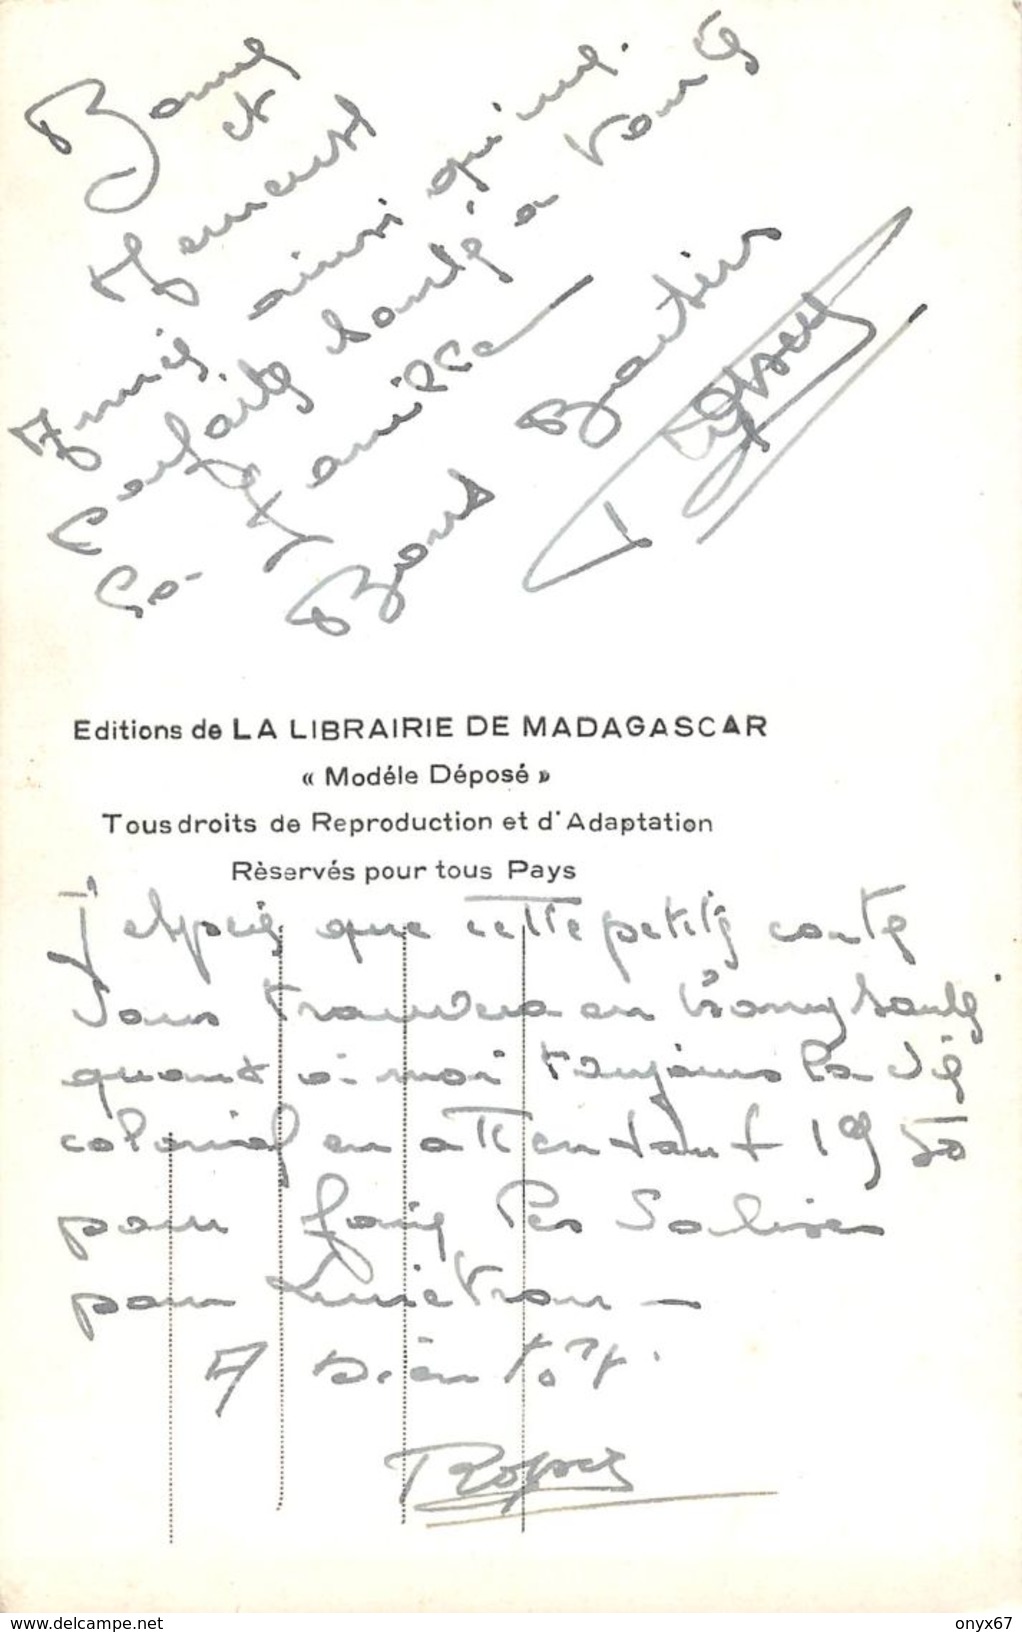 Bonne
et
Heureuse
Année, ainsi qu'une
Parfaite Santé à toute
la famille
Bons Baisers
Editions de LA LIBRAIRIE DE MADAGASCAR
« Modéle Déposé »
Tous droits de Reproduction et d'Adaptation
Rèservés pour tous Pays
J'espère que cette petite carte
vous trouvera en bonne santé
quant à moi toujours la vie
colonial en attendant 1950
pour faire les valises
pour
A bientot.
delcampe.net
onyx67